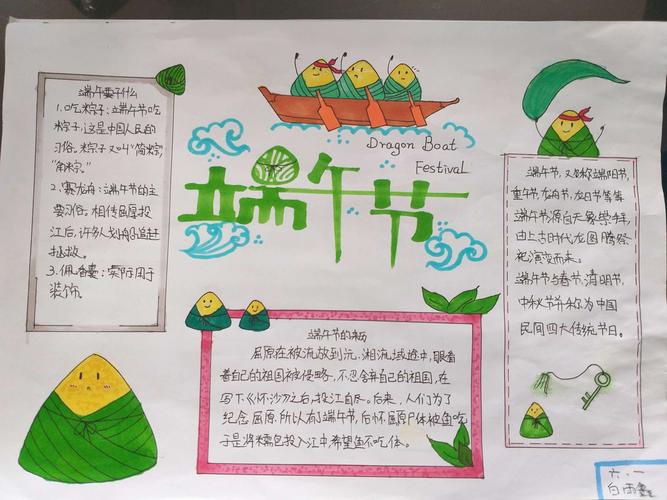 端午要干什么
1.吃粽子：端午节吃
粽子，这是中国人民的
习俗。粽子又叫"筒粽"，
"角粽"。
2.赛龙舟：端午节的主
要习俗。相传屈原投
江后，许多人划船追赶
拯救。
3.佩香囊：实际用于
装饰
Dragon Boat
Festival
端午节
端午节，又称端阳节，
重午节，龙舟节，龙日节等等
端午节源自天象崇拜，
由上古时代龙图腾祭
祀演变而来。
端午节与春节，清明节，
中秋节并称为中国
民间四大传统节日。
端午节的来历
屈原在被流放到沅、湘流域途中，眼看
着自己的祖国被侵略，不忍舍弃自己的祖国，在
写下《怀沙》之后，投江自尽。后来，人们为了
纪念屈原。所以有了端午节，后怀屈原尸体被鱼吃
于是将糯包投入江中希望鱼不吃体。
六.一
白雨鑫